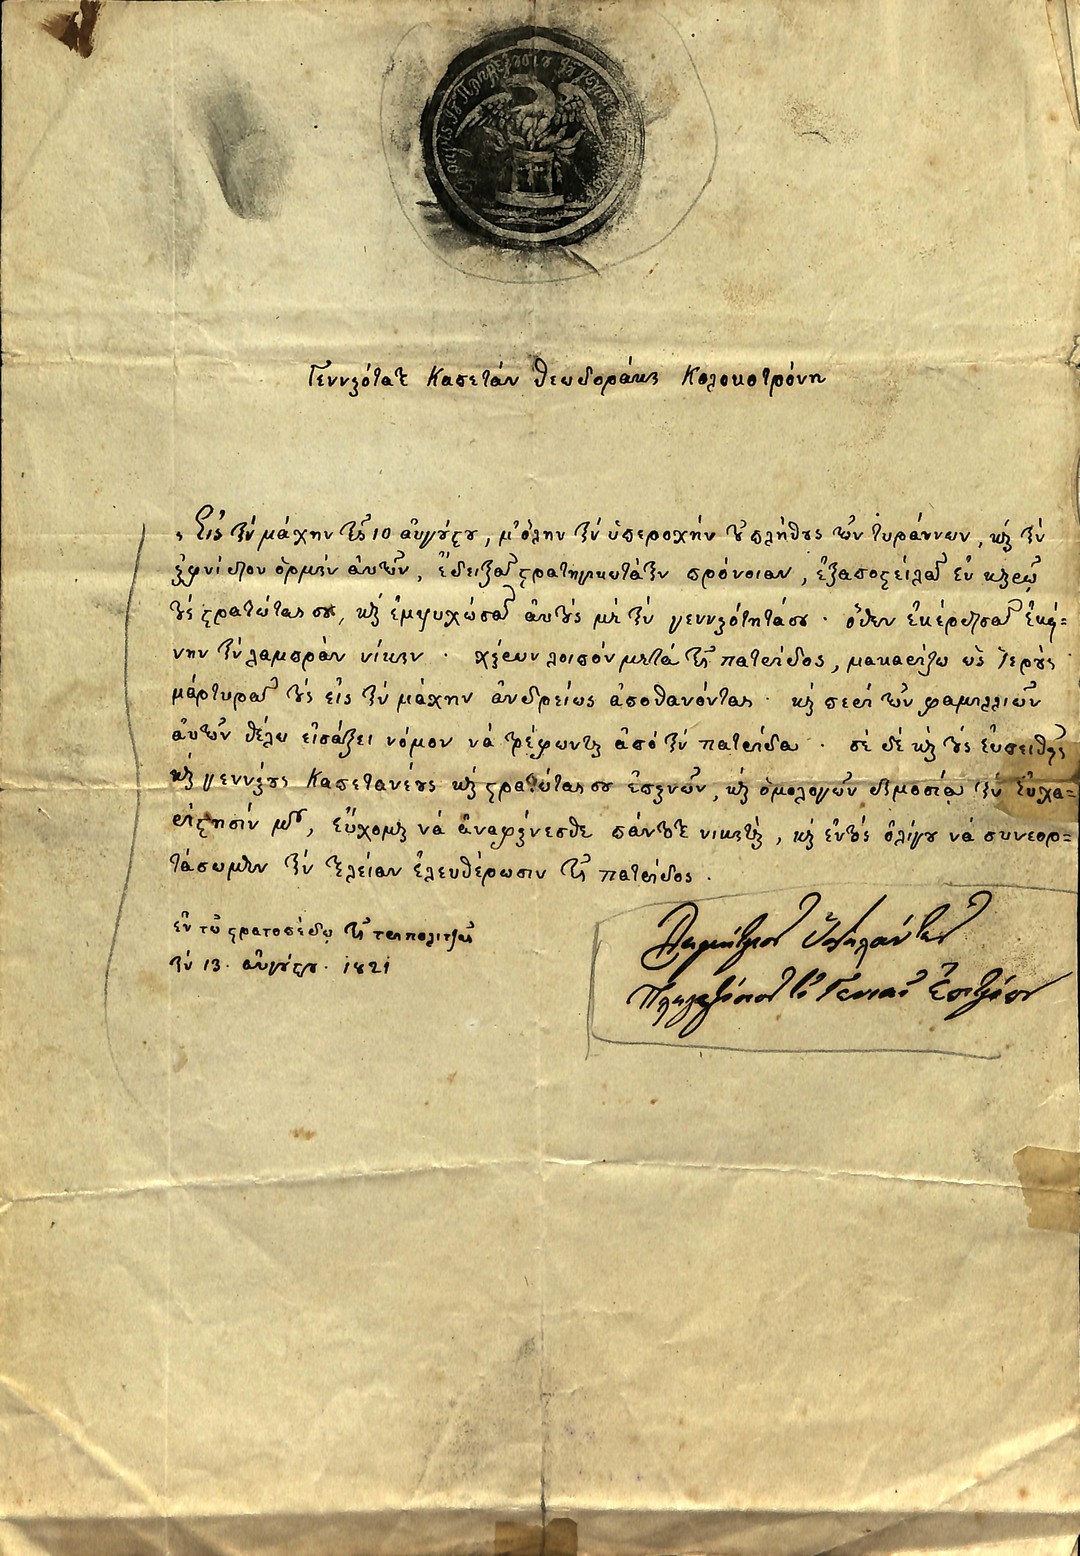 Γενναιότατε Καπετάν Θεωδοράκη Κολοκοτρόνη
Εἰς τὴν μάχην τῆς 10 αὐγούστου, μ' ὅλην τὴν ὑπεροχὴν τοῦ πλήθους τῶν τυράννων, καὶ τὴν
ἐξαφνίδιον ὁρμὴν αὐτῶν, ἔδειξας στρατηγικωτάτην πρόνοιαν, ἐξαποστείλας ἐν καιρῷ
τοὺς στρατιώτας σου, καὶ ἐμψυχώσας αὐτοὺς μὲ τὴν γενναιότητά σου. ὅθεν ἐκέρδησας ἐκεί=
νην τὴν λαμπρὰν νίκην. χαίρων λοιπὸν μετὰ τῆς πατρίδος, μακαρίζω ὡς ἱεροὺς
μάρτυρας τοὺς εἰς τὴν μάχην ἀνδρείως ἀποθανόντας. καὶ περὶ τῶν φαμιλλιῶν
αὐτῶν θέλω εἰσάξει νόμον νὰ τρέφωνται ἀπὸ τὴν πατρίδα. σὲ δὲ καὶ τοὺς εὐπειθεῖς
καὶ γενναίους Καπετανέους καὶ στρατιώτας σου ἐπαινῶν, καὶ ὁμολογῶν δημοσίᾳ τὴν εὐχα=
ρίστησίν μου, εὔχομαι νὰ ἀναφαίνεσθε πάντοτε νικηταί, καὶ ἐντὸς ὀλίγου νὰ συνεορ=
τάσωμεν τὴν τελείαν ἐλευθέρωσιν τῆς πατρίδος.
ἐν τῷ στρατοπέδῳ τῆς τριπολιτζᾶς
τὴν 13. αὐγούστου. 1821
Δημήτριος Ὑψηλάντης
Πληρεξούσιος τοῦ Γενικοῦ Ἐπιτρόπου